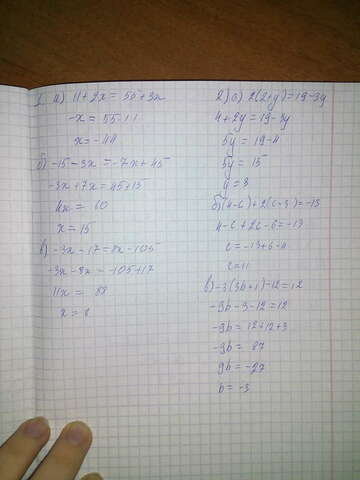 1. а) 11+2x = 55+3x
-x = 55-11
x = -44
б) -15-3x = -7x+45
-3x+7x = 45+15
4x = 60
x = 15
в) -3x-17 = 8x-105
-3x-8x = -105+17
11x = 88
x = 8
2) а) 2(2+y) = 19-3y
4+2y = 19-3y
5y = 19-4
5y = 15
y = 3
б) (4-c)+2(c-3) = -13
4-c+2c-6 = -13
c = -13+6-4
c = 11
в) -3(3b+1)-12 = 12
-9b-3-12 = 12
-9b = 12+12+3
-9b = 87
9b = -27
b = -3